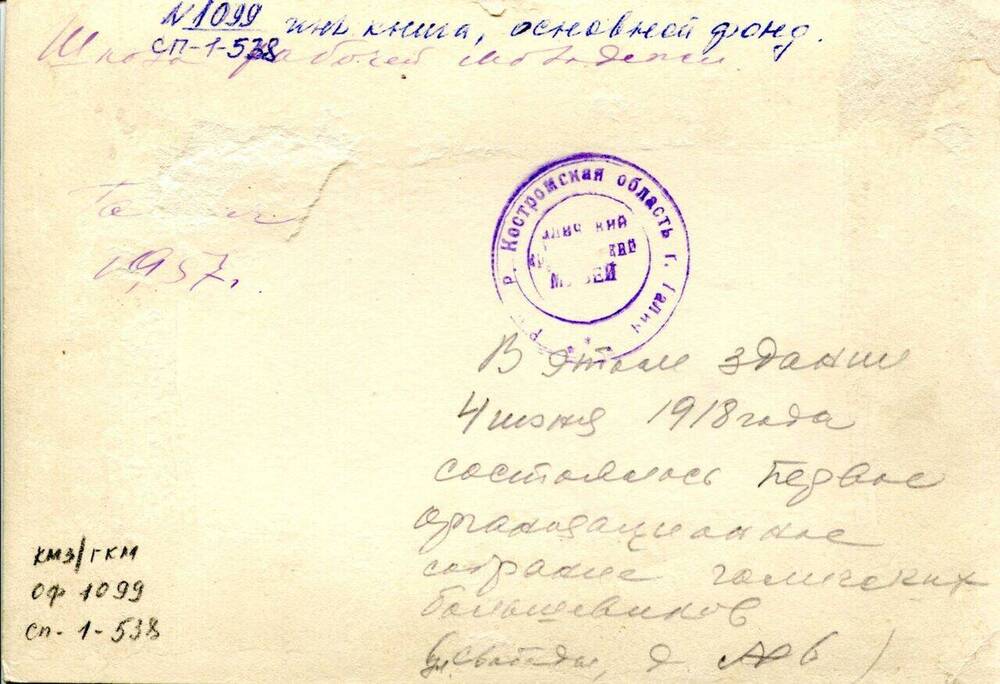 N 1099 инв книга, основной фонд.
СП-1-538
Школа рабочей молодежи
Галич
1957г.
Р. Костромская область г. Галич
МУЗЕЙ
В этом здании
4 июня 1918 года
состоялось первое
организационное
собрание галичских
большевиков
(ул. Свободы, д. 6)
КМЗ/ГКМ
ОФ 1099
СП-1-538